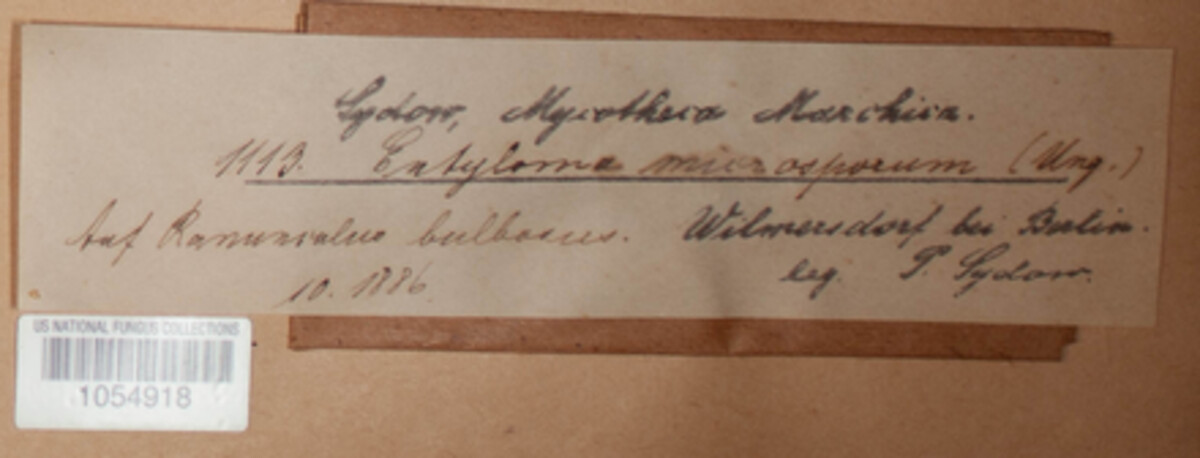 Sydow, Mycotheca Marchica.
1113. Entyloma microsporum (Ung.)
Auf Ranunculus bulbosus. Wilmersdorf bei Berlin.
10. 1886. leg. P. Sydow.
US NATIONAL FUNGUS COLLECTIONS
1054918